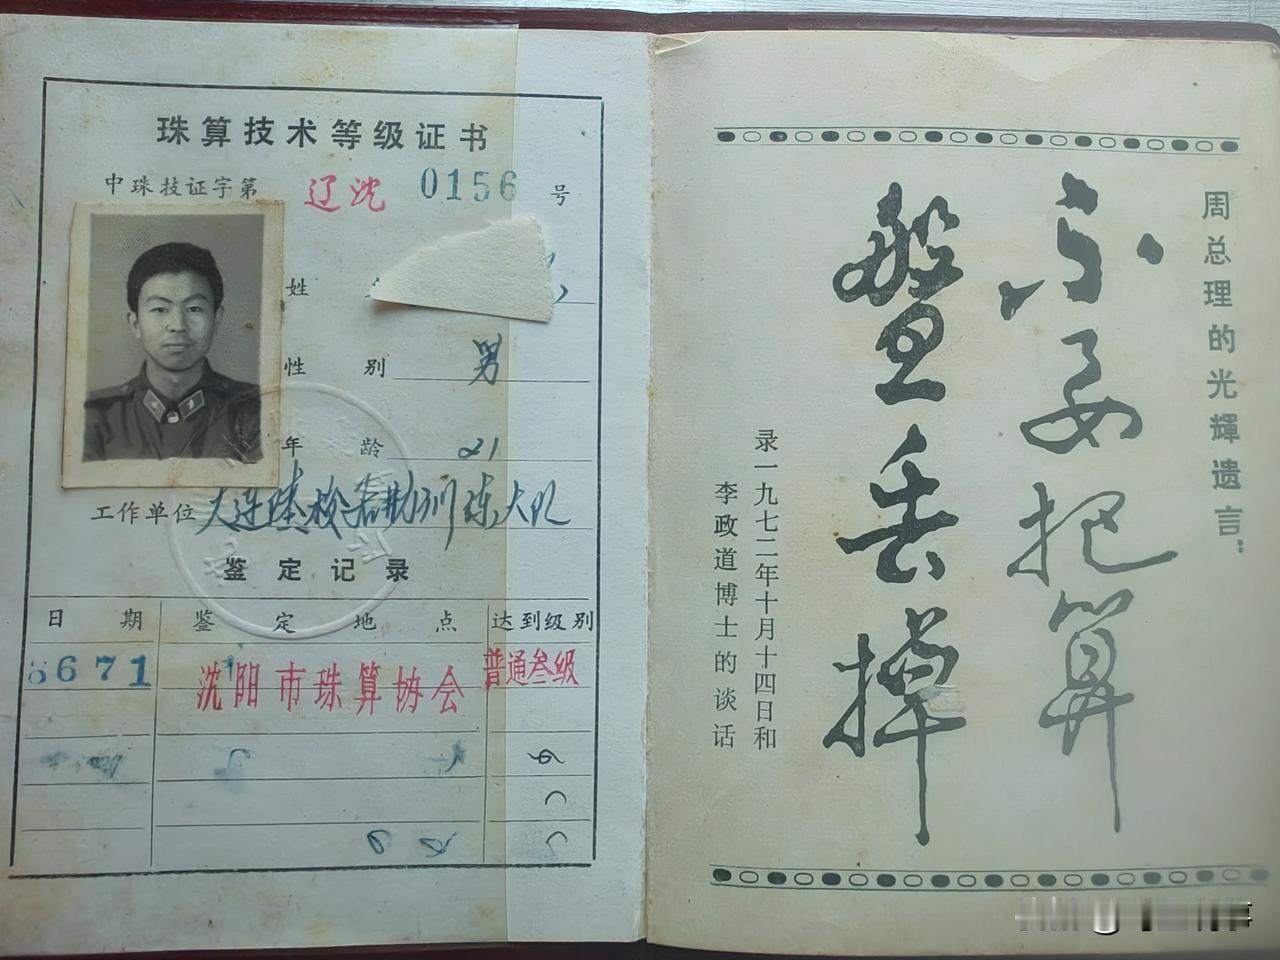 珠算技术等级证书
中珠技证字第 辽沈 0156 号
姓
性 别 男
年 龄 21
工作单位 大连陆校后勤训练大队
鉴定记录
日 期 鉴 定 地 点 达到级别
8671 沈阳市珠算协会 普通叁级
周总理的光輝遗言：
不要把算
盘丢掉
录一九七二年十月十四日和
李政道博士的谈话